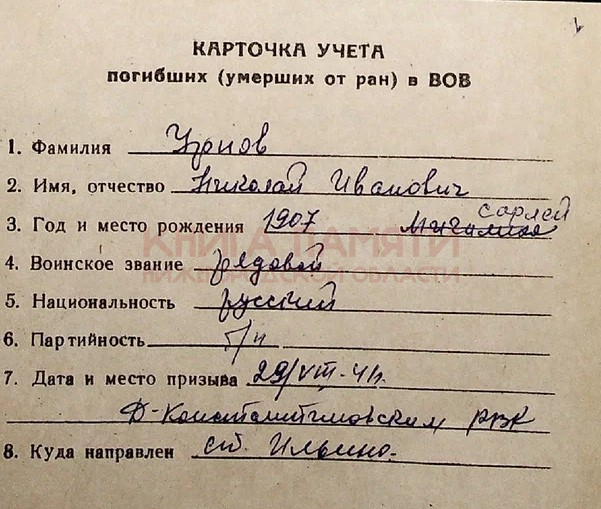 КАРТОЧКА УЧЕТА
погибших (умерших от ран) в ВОВ
1. Фамилия
2. Имя, отчество Николай Иванович
3. Год и место рождения 1907 Сарлей
КНИГА ПАМЯТИ
4. Воинское звание рядовой
НИЖЕГОРОДСКОЙ ОБЛАСТИ
5. Национальность русский
6. Партийность б/п
7. Дата и место призыва 29/VIII-41г.
Д-Константиновским РВК
8. Куда направлен ст. Ильино.